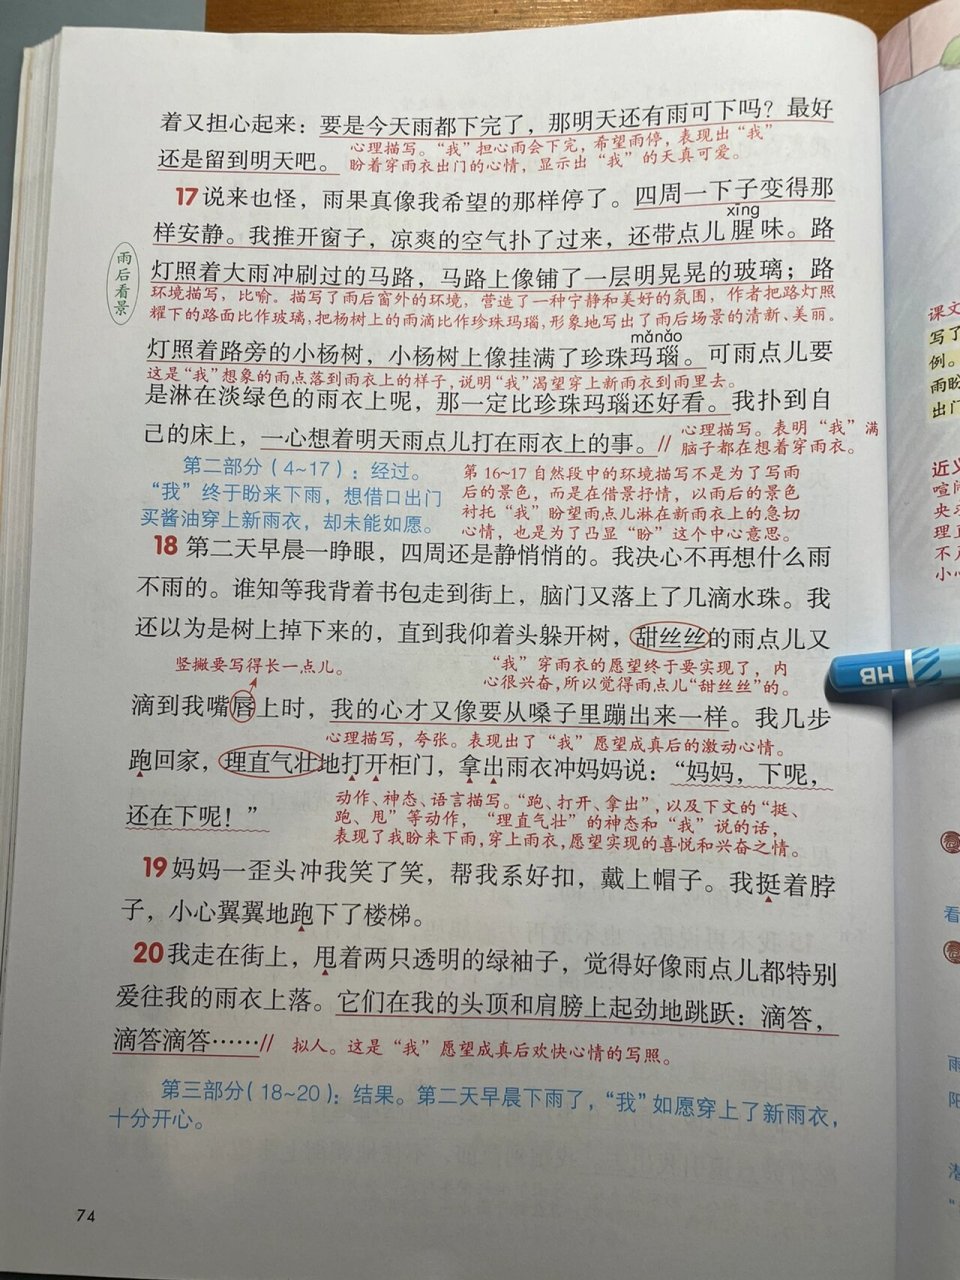 着又担心起来：要是今天雨都下完了，那明天还有雨可下吗？最好
心理描写。“我”担心雨会下完，希望雨停，表现出“我”
还是留到明天吧。
盼着穿雨衣出门的心情，显示出“我”的天真可爱。
17说来也怪，雨果真像我希望的那样停了。四周一下子变得那
xīng
样安静。我推开窗子，凉爽的空气扑了过来，还带点儿腥味。路
雨后看景
灯照着大雨冲刷过的马路，马路上像铺了一层明晃晃的玻璃；路
环境描写，比喻。描写了雨后窗外的环境，营造了一种宁静和美好的氛围，作者把路灯照
耀下的路面比作玻璃，把杨树上的雨滴比作珍珠玛瑙，形象地写出了雨后场景的清新、美丽。
mǎnǎo
灯照着路旁的小杨树，小杨树上像挂满了珍珠玛瑙。可雨点儿要
这是“我”想象的雨点落到雨衣上的样子，说明“我”渴望穿上新雨衣到雨里去。
是淋在淡绿色的雨衣上呢，那一定比珍珠玛瑙还好看。我扑到自
己的床上，一心想着明天雨点儿打在雨衣上的事。//
心理描写。表明“我”满
脑子都在想着穿雨衣。
第二部分（4~17）：经过。
“我”终于盼来下雨，想借口出门
买酱油穿上新雨衣，却未能如愿。
第16~17自然段中的环境描写不是为了写雨
后的景色，而是在借景抒情，以雨后的景色
衬托“我”盼望雨点儿淋在新雨衣上的急切
心情，也是为了凸显“盼”这个中心意思。
18 第二天早晨一睁眼，四周还是静悄悄的。我决心不再想什么雨
不雨的。谁知等我背着书包走到街上，脑门又落上了几滴水珠。我
还以为是树上掉下来的，直到我仰着头躲开树，甜丝丝的雨点儿又
竖撇要写得长一点儿。
“我”穿雨衣的愿望终于要实现了，内
心很兴奋，所以觉得雨点儿“甜丝丝”的。
滴到我嘴唇上时，我的心才又像要从嗓子里蹦出来一样。我几步
心理描写，夸张。表现出了“我”愿望成真后的激动心情。
跑回家，理直气壮地打开柜门，拿出雨衣冲妈妈说：“妈妈，下呢，
还在下呢！”
动作、神态、语言描写。“跑、打开、拿出”，以及下文的“挺、
跑、甩”等动作，“理直气壮”的神态和“我”说的话，
表现了我盼来下雨，穿上雨衣，愿望实现的喜悦和兴奋之情。
19妈妈一歪头冲我笑了笑，帮我系好扣，戴上帽子。我挺着脖
子，小心翼翼地跑下了楼梯。
20我走在街上，甩着两只透明的绿袖子，觉得好像雨点儿都特别
爱往我的雨衣上落。它们在我的头顶和肩膀上起劲地跳跃：滴答，
滴答滴答……//
拟人。这是“我”愿望成真后欢快心情的写照。
第三部分（18~20）：结果。第二天早晨下雨了，“我”如愿穿上了新雨衣，
十分开心。
74
HB
课文
写了
例。
雨盼
出门
近义
喧闹
央求
理直
不
小心
看
雨
阳